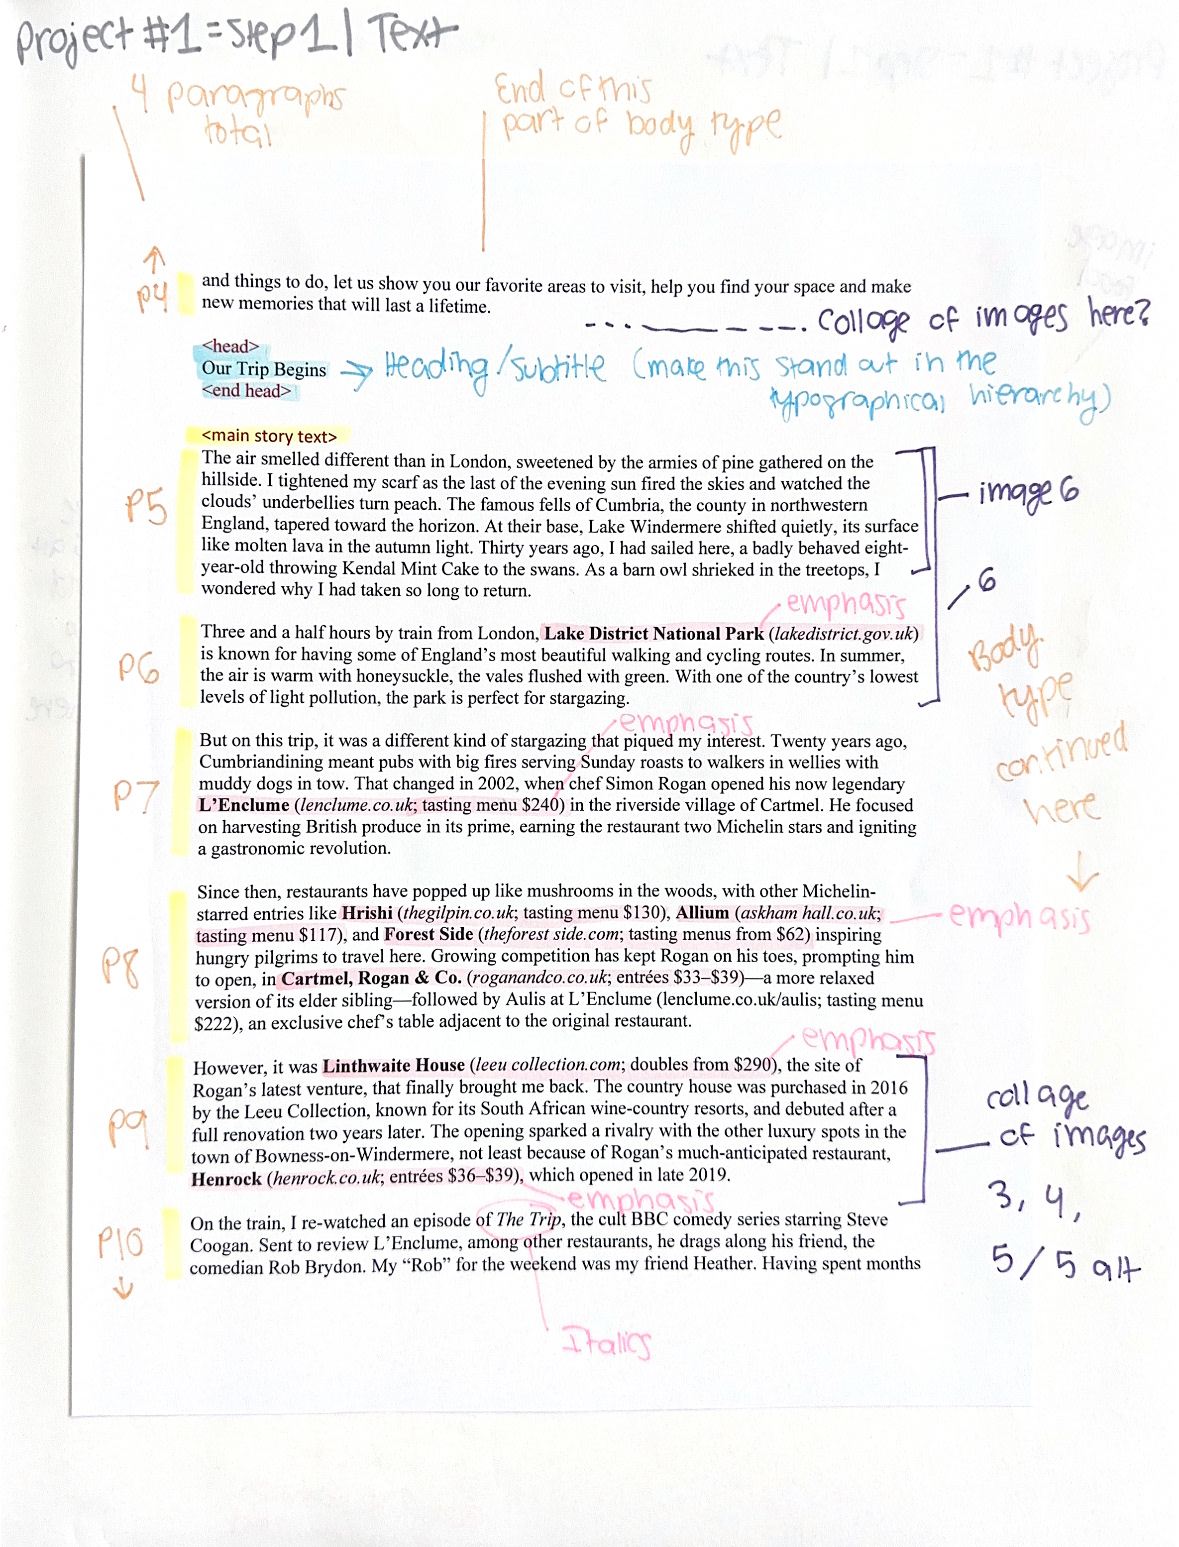 Project #1 = Step 1 | Text
4 paragraphs
total
End of this
part of body type
P4
and things to do, let us show you our favorite areas to visit, help you find your space and make
new memories that will last a lifetime.
Collage of images here?
<head>
Our Trip Begins
<end head>
Heading/Subtitle (make this stand out in the
typographical hierarchy)
<main story text>
P5
The air smelled different than in London, sweetened by the armies of pine gathered on the
hillside. I tightened my scarf as the last of the evening sun fired the skies and watched the
clouds' underbellies turn peach. The famous fells of Cumbria, the county in northwestern
England, tapered toward the horizon. At their base, Lake Windermere shifted quietly, its surface
like molten lava in the autumn light. Thirty years ago, I had sailed here, a badly behaved eight-
year-old throwing Kendal Mint Cake to the swans. As a barn owl shrieked in the treetops, I
wondered why I had taken so long to return.
image 6
6
emphasis
P6
Three and a half hours by train from London, Lake District National Park (lakedistrict.gov.uk)
is known for having some of England's most beautiful walking and cycling routes. In summer,
the air is warm with honeysuckle, the vales flushed with green. With one of the country's lowest
levels of light pollution, the park is perfect for stargazing.
Body
type
continued
here
emphasis
P7
But on this trip, it was a different kind of stargazing that piqued my interest. Twenty years ago,
Cumbriandining meant pubs with big fires serving Sunday roasts to walkers in wellies with
muddy dogs in tow. That changed in 2002, when chef Simon Rogan opened his now legendary
L'Enclume (lenclume.co.uk; tasting menu $240) in the riverside village of Cartmel. He focused
on harvesting British produce in its prime, earning the restaurant two Michelin stars and igniting
a gastronomic revolution.
P8
Since then, restaurants have popped up like mushrooms in the woods, with other Michelin-
starred entries like Hrishi (thegilpin.co.uk; tasting menu $130), Allium (askham hall.co.uk;
tasting menu $117), and Forest Side (theforest side.com; tasting menus from $62) inspiring
hungry pilgrims to travel here. Growing competition has kept Rogan on his toes, prompting him
to open, in Cartmel, Rogan & Co. (roganandco.co.uk; entrées $33–$39)—a more relaxed
version of its elder sibling—followed by Aulis at L'Enclume (lenclume.co.uk/aulis; tasting menu
$222), an exclusive chef's table adjacent to the original restaurant.
emphasis
emphasis
P9
However, it was Linthwaite House (leeu collection.com; doubles from $290), the site of
Rogan's latest venture, that finally brought me back. The country house was purchased in 2016
by the Leeu Collection, known for its South African wine-country resorts, and debuted after a
full renovation two years later. The opening sparked a rivalry with the other luxury spots in the
town of Bowness-on-Windermere, not least because of Rogan's much-anticipated restaurant,
Henrock (henrock.co.uk; entrées $36–$39), which opened in late 2019.
collage
of images
3, 4,
5/5 alt
emphasis
P10
On the train, I re-watched an episode of The Trip, the cult BBC comedy series starring Steve
Coogan. Sent to review L'Enclume, among other restaurants, he drags along his friend, the
comedian Rob Brydon. My "Rob" for the weekend was my friend Heather. Having spent months
Italics